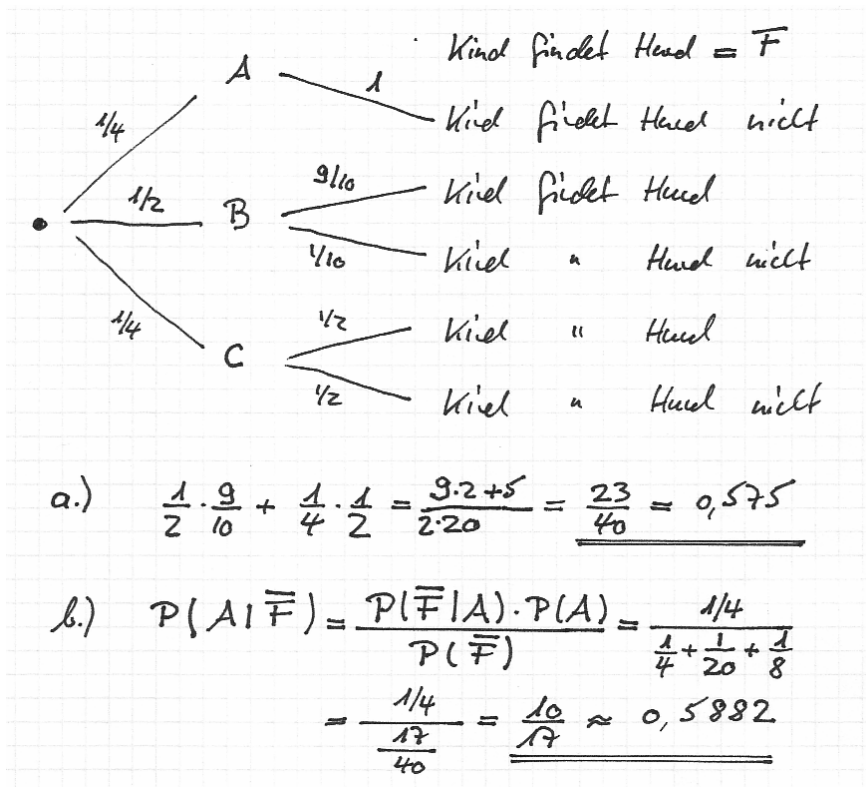 Kind findet Hund = F̅
A 1
Kind findet Hund nicht
1/4
9/10 Kind findet Hund
1/2 B
1/10 Kind " Hund nicht
1/4
1/2 Kind " Hund
C
1/2 Kind " Hund nicht
a.) 1/2 · 9/10 + 1/4 · 1/2 = (9·2+5)/(2·20) = 23/40 = 0,575
b.) P(A|F̿) = P(F̿|A)·P(A) / P(F̿) = (1/4) / (1/4 + 1/20 + 1/8)
= (1/4) / (17/40) = 10/17 ≈ 0,5882